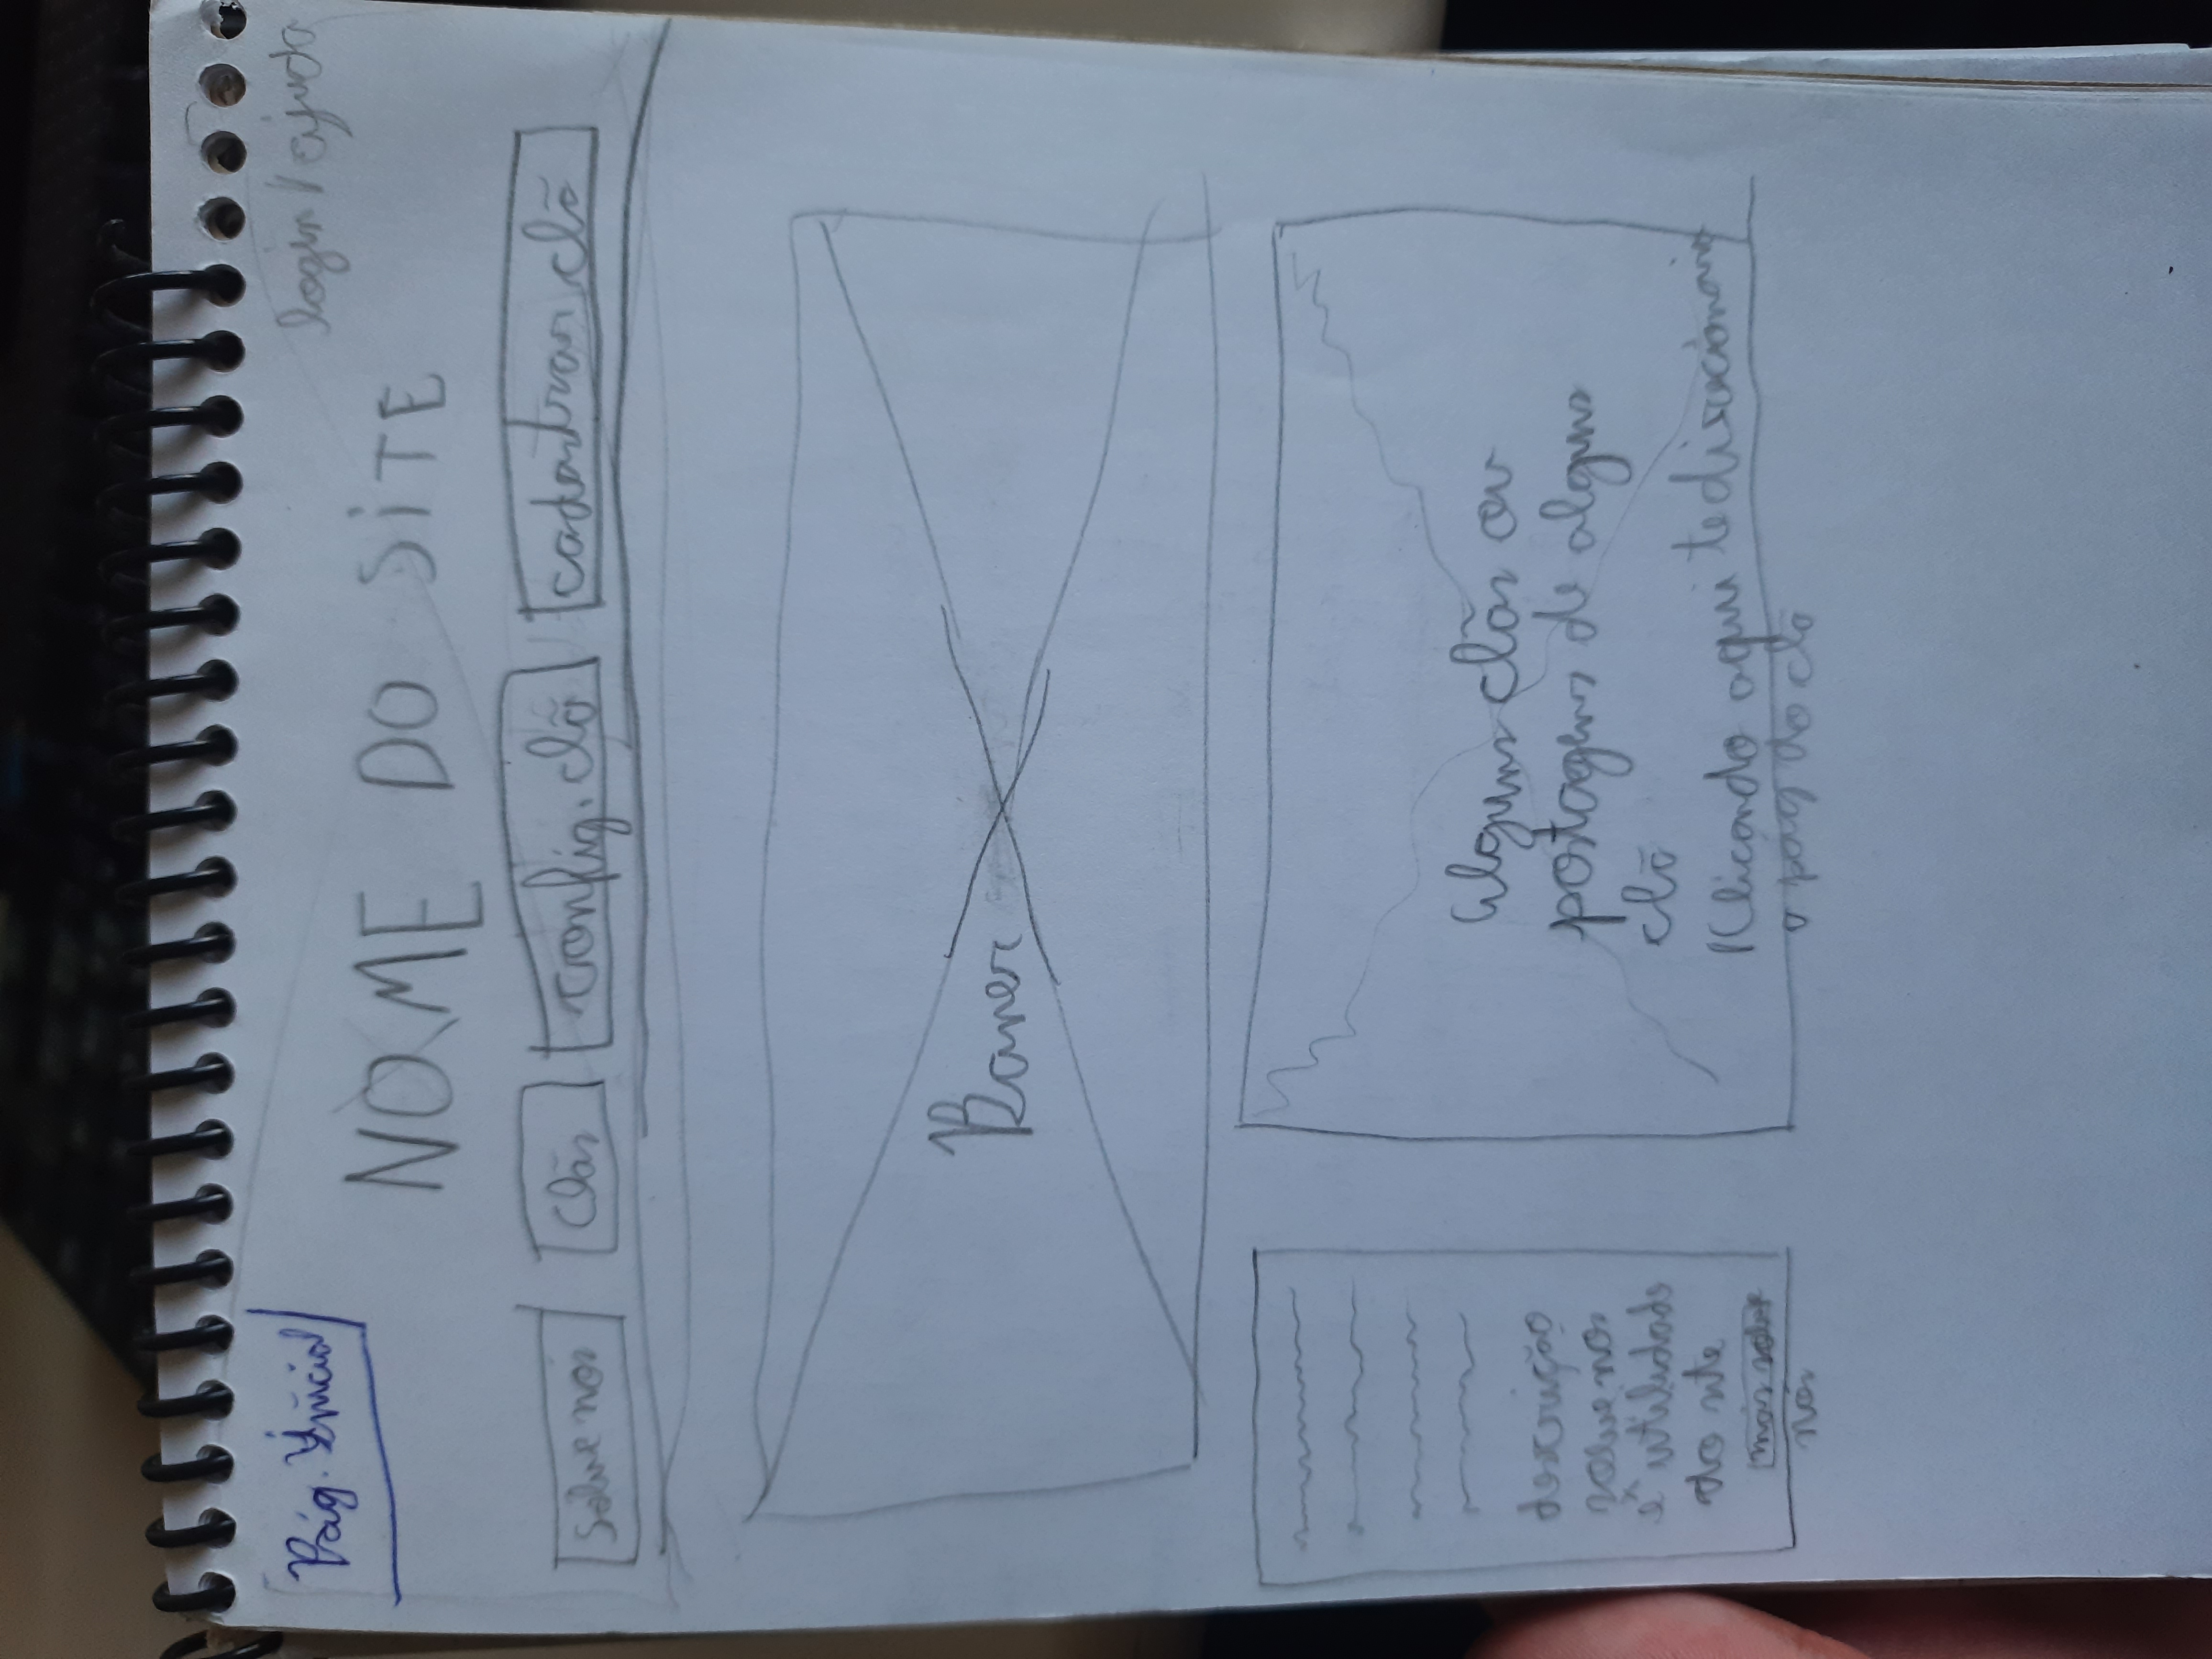 Pág. Inicial
login / ajuda
NOME DO SiTE
Sobre nós
Clãs
Config. clã
cadastrar clã
Baner
descrição
sobre nós
e utilidade
do site
mais sobre
nós
Alguns clãs ou
postagens de algum
clã
Klicando aqui te direcionará
a pág do clã